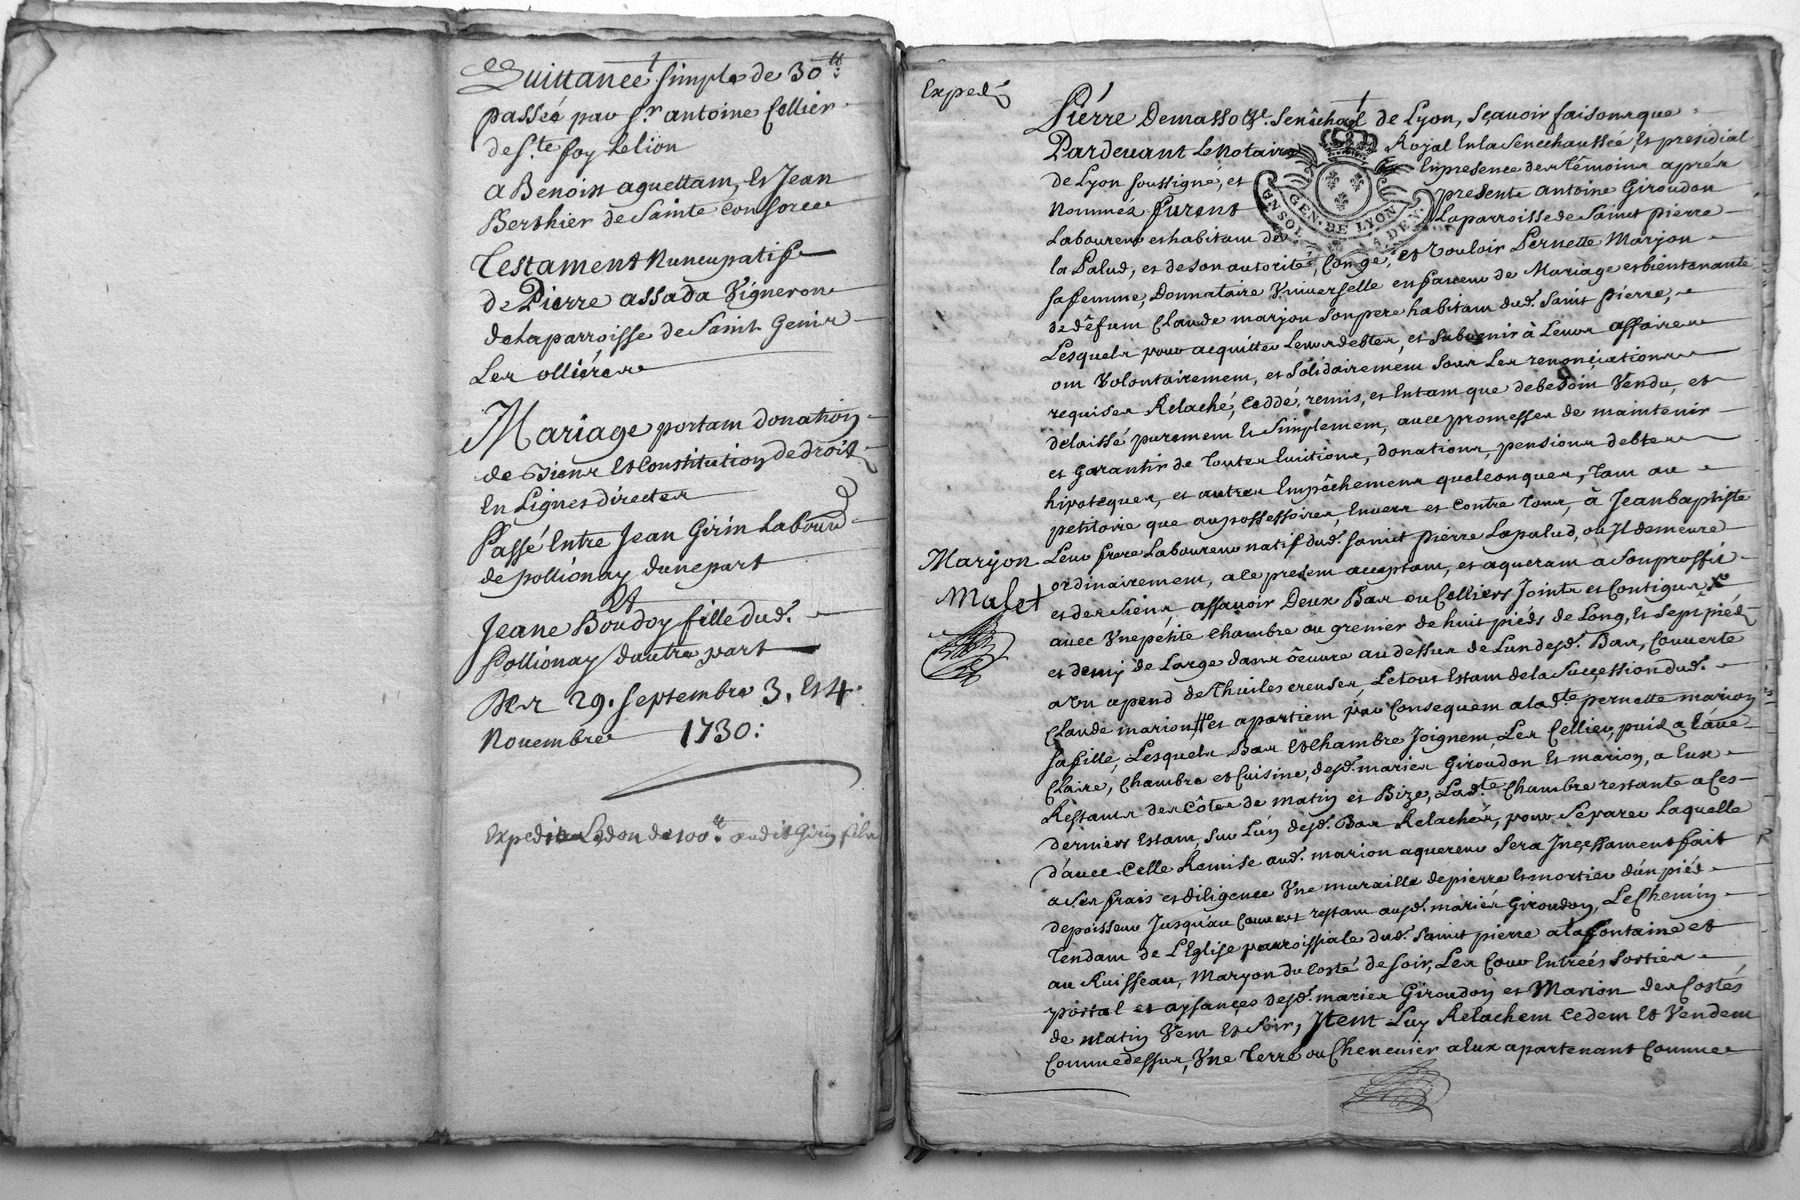 Quittance simple de 30tt:
passée par sr. antoine Cellier
de ste. foy Lelion
a Benoist aguettam, Et Jean
Berthier de Sainte Consorce
Testament Nuncupatif
de Pierre assada Vigneron
de La parroisse de Saint Genis
Les ollières
Mariage portant donation
de Biens Et Constitution de droit
En Lignes directes
Passé Entre Jean Girin Labourd
de pollionay d'une part
Et
Jeane Boudoy fille dud.
Pollionay d'autre part
Des 29. septembre 3. Et 4.
Novembre 1730:
Expedié Ledon de 100tt audit Girin fils
Expedié
Pierre Demasso &c. Senêchal de Lyon, Sçavoir faisons que
Pardevant Le Notaire Royal En la Senechaussée, Et presidial
de Lyon soussigné, et En presence des Têmoins aprés
Nommez furent presents antoine Giroudon
Laboureur et habitant de La parroisse de Saint pierre
GEN. DE LYON
la Palud, et de son autorité, Congé, et Vouloir Pernette Marjon
sa femme, Donnataire Vniverselle en faveur de Mariage et bientenante
de dêfunt Claude marjon Son pere habitant dud. Saint Pierre,
Lesquels pour acquitter Leurs debtes, et Subvenir à Leurs affaires
ont Volontairement, et Solidairement Sous Les renonçiations
requises Relaché, Ceddé, remis, et Entant que de besoin Vendu, et
delaissé purement Et Simplement, avec promesses de maintenir
et garantir de Toutes Evictions, donations, pensions debtes
hipoteques, et autres Empêchemens quelconques, Tant au
petitoire que au possessoire, Envers et Contre Tous, à Jean baptiste
Marjon Leur frere Laboureur natif dud. Saint Pierre Lapalud, ou Jl demeure
ordinairement, a Ce present acceptant, et aquerant a Son proffit
Malet
et des Siens, assavoir Deux Bas ou Celliers Joints et Contigus
avec Vne petite Chambre ou grenier de huit piéds de Long, Et Sept piéd
et demy de Large dans oeuvre au dessus de L'un desd. Bas, Couverte
a Un apend de Thuiles creuses, Le tout Estant de la Succession dud.
Claude marion et apartient par Consequent a lad.te pernette marion
sa fille, Lesquels Bas Et Chambre Joignent, Les Cellier, puis a l'ave
Claire, Chambre et Cuisine, desd. mariés Giroudon Et marion, a Eux
Restants des Côtes de matin et Bize, Lad.te Chambre restante a Ces
derniers Estant, Sur L'un desd. Bas Relachés, pour Separer Laquelle
d'avec Celle Remise aud. marion aquereur Sera Jnçessament fait
a Ses frais et diligence Vne muraille de pierre Et mortier d'un pied
depoisseur Jusqu'au Couvert restant ausd. mariés Giroudon, Le Chemin
Tendant de L'Eglise parroissiale dud. Saint pierre a la fontaine et
au Ruisseau, Maryon du Costé de soir, Les Cour Entreés Sorties
portal et aysançes desd. mariés Giroudon et Marion des Costés
de matin Vent Et Soir, Jtem Luy Relachent Cedent Et Vendent
Comme dessus, Vne Terre ou Chenevier a Eux apartenant Comme